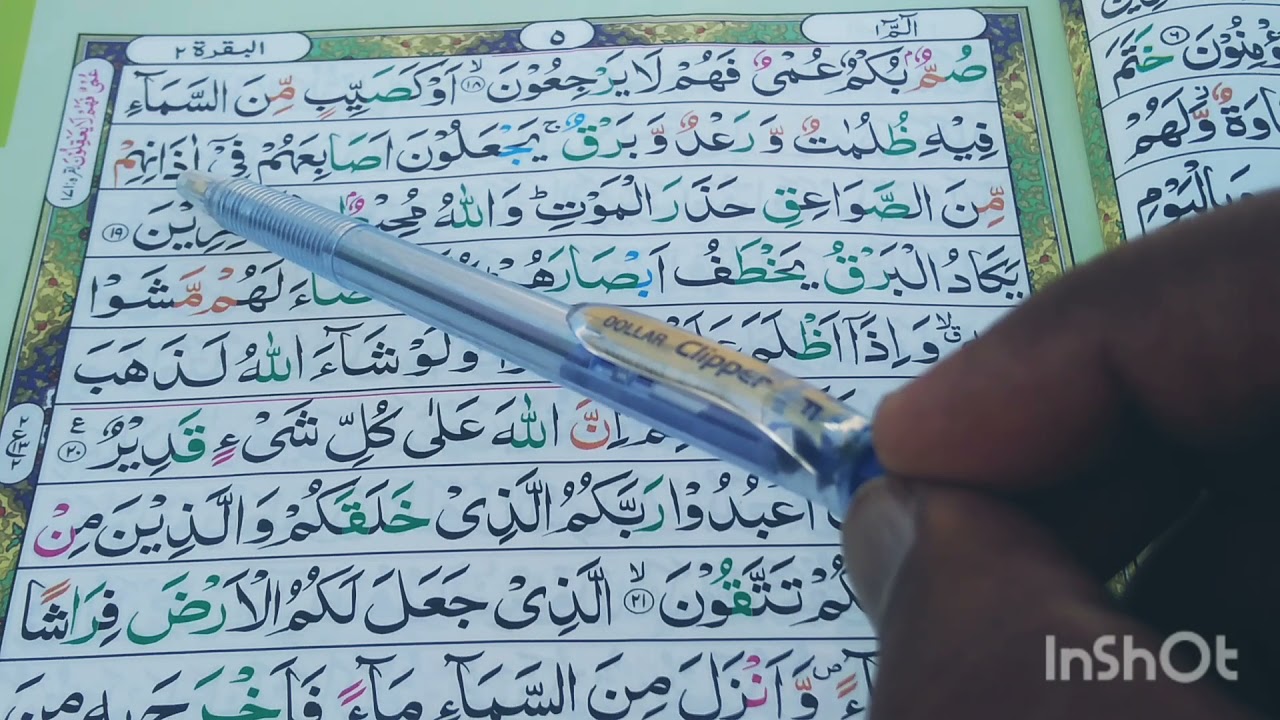 الٓمّٓ ١
٥
البقرة ٢
صُمٌّۢ بُكْمٌ عُمْیٌ فَهُمْ لَا یَرْجِعُوْنَ ۙ۱۸ اَوْ كَصَیِّبٍ مِّنَ السَّمَآءِ
فِیْهِ ظُلُمٰتٌ وَّ رَعْدٌ وَّ بَرْقٌ ۚ یَجْعَلُوْنَ اَصَابِعَهُمْ فِیْۤ اٰذَانِهِمْ
مِّنَ الصَّوَاعِقِ حَذَرَ الْمَوْتِ ؕ وَاللّٰهُ ۱۹
یَكَادُ الْبَرْقُ یَخْطَفُ اَبْصَارَهُمْ لَهُمْ مَّشَوْا
وَاِذَاۤ اَظْلَمَ وَلَوْ شَآءَ اللّٰهُ لَذَهَبَ
اِنَّ اللّٰهَ عَلٰی كُلِّ شَیْءٍ قَدِیْرٌ ع ۲۰
اعْبُدُوْا رَبَّكُمُ الَّذِیْ خَلَقَكُمْ وَالَّذِیْنَ مِنْ
تَتَّقُوْنَ ۙ۲۱ الَّذِیْ جَعَلَ لَكُمُ الْاَرْضَ فِرَاشًا
وَّاَنْزَلَ مِنَ السَّمَآءِ مَآءً فَاَخْرَجَ بِهٖ مِنَ
خَتَمَ
وَّلَهُمْ
وَبِالْیَوْمِ
DOLLAR Clipper
InShOt